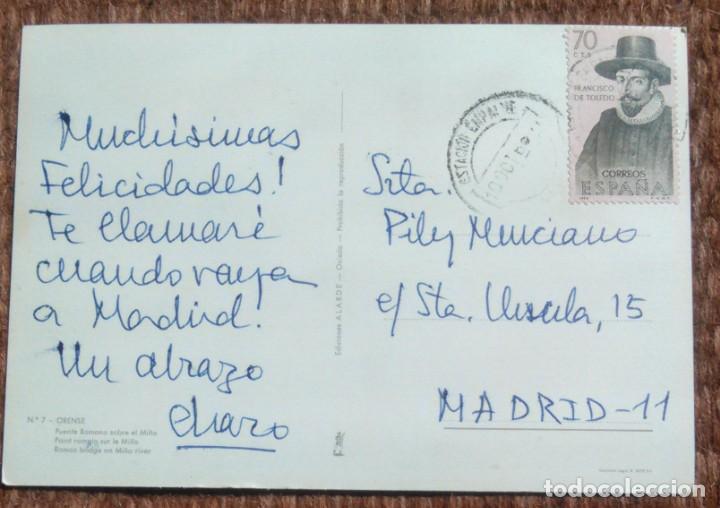 Muchísimas
Felicidades!
Te llamaré
cuando vaya
a Madrid!
Un abrazo
Charo
Nº 7 - ORENSE
Puente Romano sobre el Miño
Pont romain sur le Miño
Roman bridge on Miño river
Ediciones ALARDE - Oviedo - Prohibida la reproducción
70
CTS
FRANCISCO
DE TOLEDO
CORREOS
ESPAÑA
ESTACION EMPALME
Srta.
Pily Murciano
c/ Sta. Ursula, 15
MADRID-11
todocoleccion.net